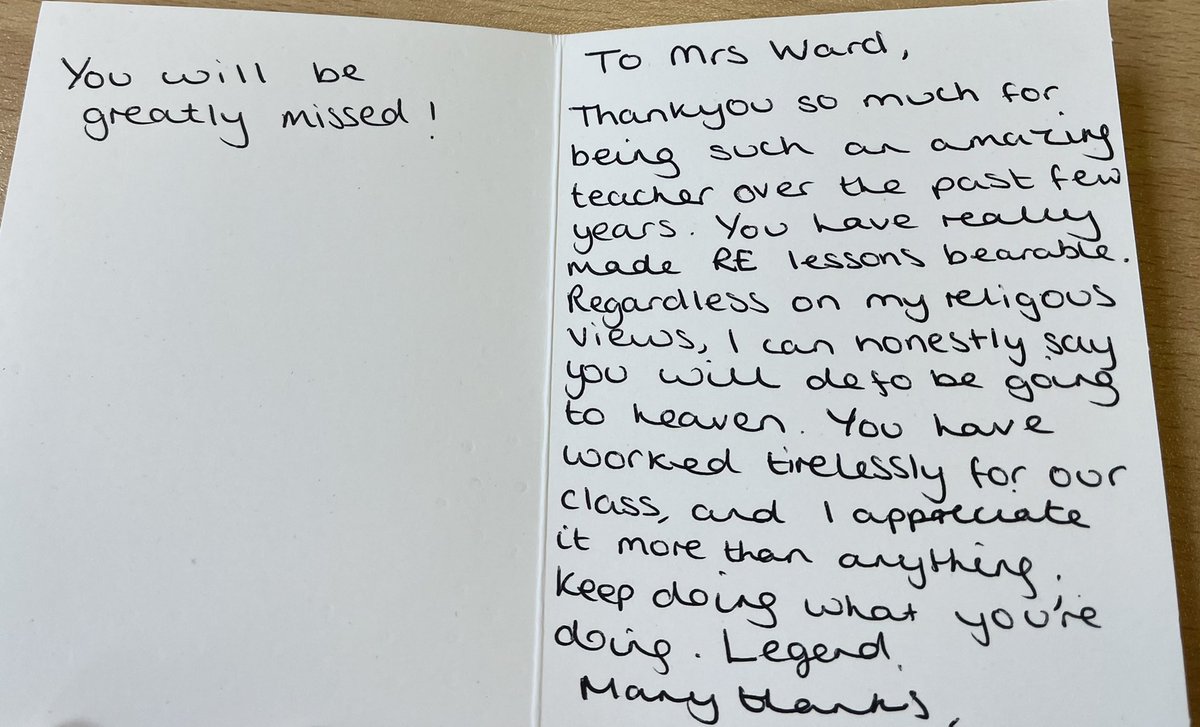 You will be
greatly missed!
To Mrs Ward,
Thankyou so much for
being such an amazing
teacher over the past few
years. You have really
made RE lessons bearable.
Regardless on my religous
views, I can honestly say
you will defo be going
to heaven. You have
worked tirelessly for our
class, and I appreciate
it more than anything.
Keep doing what you're
doing. Legend.
Many thanks,